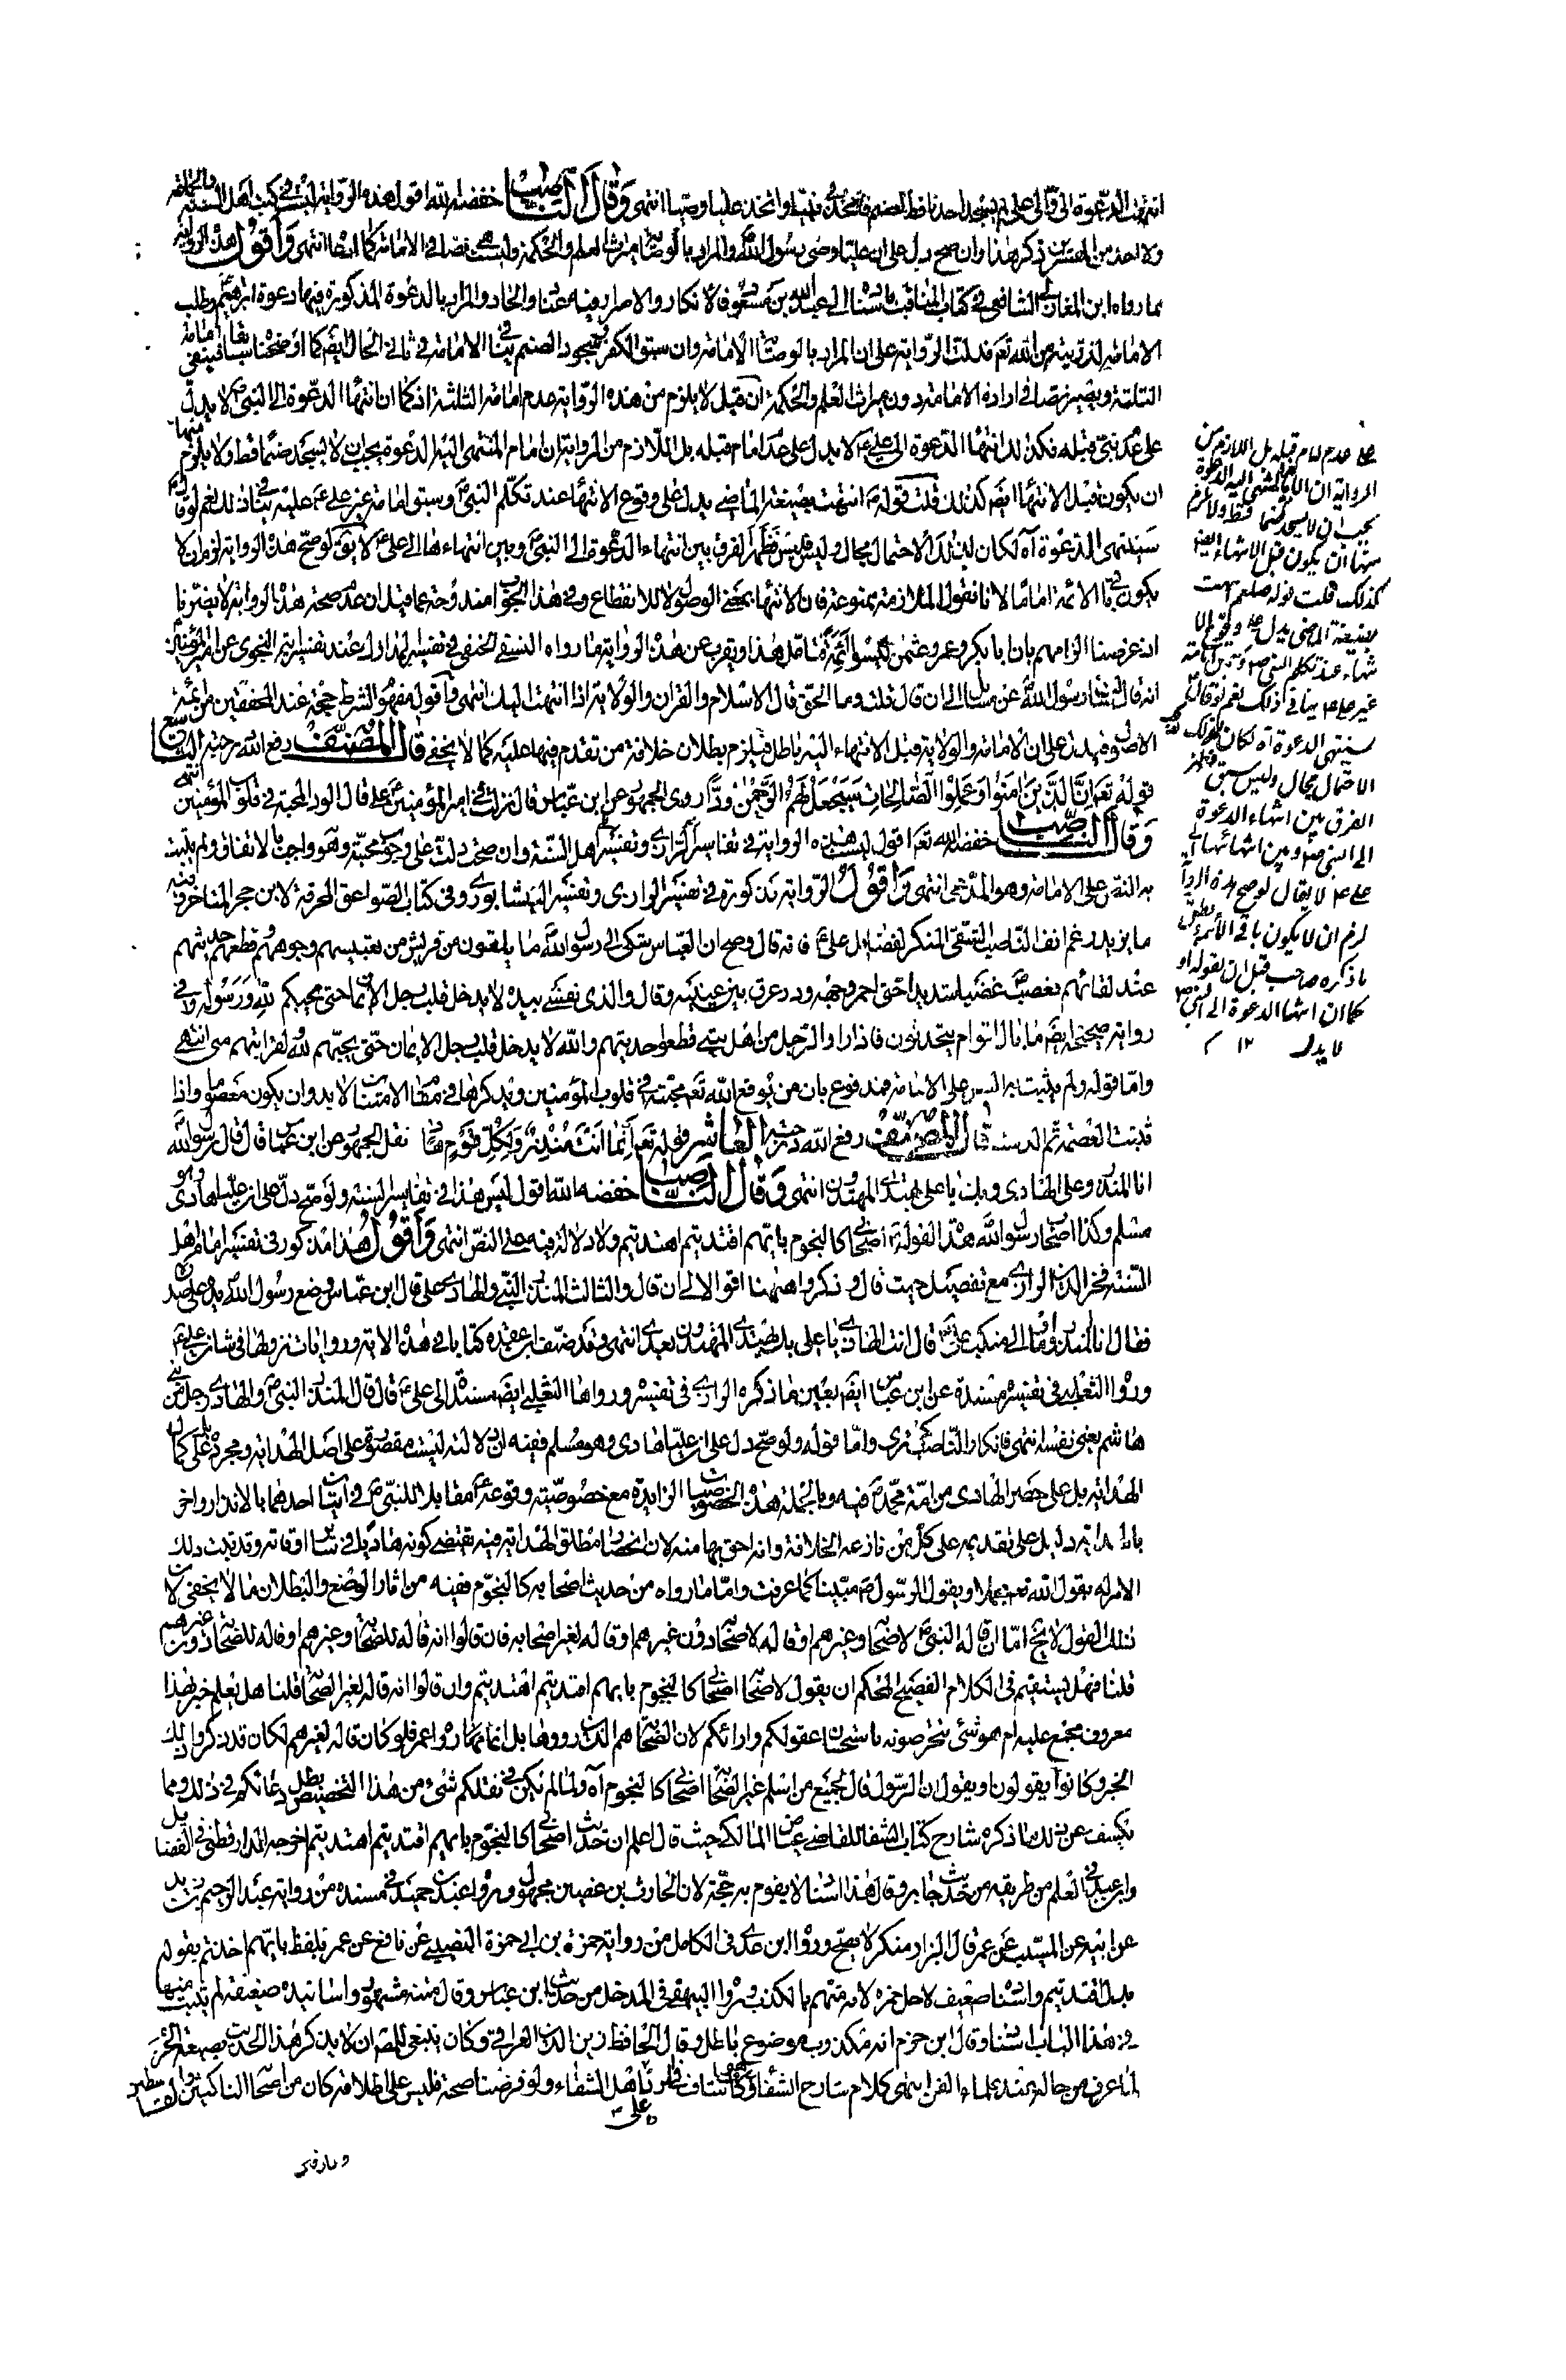 انتهت الدعوة الي و الى علي لم يسجد احدنا قط لصنم فاتخذني نبيا واتخذ عليا وصيا انتهى وقال الناصب خفضه الله اقول هذه الرواية ليست في كتب اهل السنة والجماعة
ولا احد من المفسرين ذكر هذا وان صح دل على ان عليا وصى رسول الله والمراد بالوصاية ميراث العلم والحكمة وليست هي نصا في الامامة كما ادعاه انتهى واقول هذه الرواية
مما رواه ابن المغازلي الشافعي في كتاب المناقب باسناده الى عبد الله بن مسعود فالانكار والاصرار فيه عناد والحاد والمراد بالدعوة المذكورة فيها دعوة ابرهيم وطلب
الامامة لذريته من الله تع فدلت الرواية على ان المراد بالوصاية الامامة وان سبق الكفر وسجود الصنم ينافي الامامة في ثاني الحال ايضا كما اوضحناه سابقا فينفي امامة
الثلثة ويصير نصا في ارادة الامامة دون ميراث العلم والحكمة ان قيل لا يلزم من هذه الرواية عدم امامة الثلثة اذ كما ان انتهاء الدعوة الى النبي ص لا يدل
على عدم نبي قبله فكذلك انتهاء الدعوة الى علي ع لا يدل على عدم امام قبله بل اللازم من الرواية ان امام المنتهى اليه الدعوة يجب ان لا يسجد صنما قط ولا يلزم منها
ان يكون قبل الانتهاء ايضا كذلك قلت قوله ص انتهت بصيغة الماضي يدل على وقوع الانتهاء عند تكلم النبي ص وسبق امامة غير علي ع عليه ينافي ذلك نعم لو قال ص
سينتهى الدعوة آه لكان لذلك الاحتمال مجال وليس فليس فظهر الفرق بين انتهاء الدعوة الى النبي ص وبين انتهاءها الى علي ع لا يقال لو صح هذه الرواية لزم ان لا
يكون باقي الائمة اماما لانا نقول الملازمة ممنوعة فان الانتهاء بمعنى الوصول لا الانقطاع وفي هذا الجواب مندوحة عما قيل ان عدم صحة هذه الرواية لا يضرنا
اذ غرضنا الزامهم بان ابا بكر وعمر وعثمن ليسوا ائمة تامل هذا ويقرب عن هذه الرواية ما رواه النسفي الحنفي في تفسير المدارك عند تفسير اية النجوى عن امير المؤمنين
انه قال سئلت رسول الله عن مسائل الى ان قال قلت وما الحق قال الاسلام والقران والولاية اذا انتهت اليك انتهى واقول مفهوم الشرط حجة عند المحققين من ائمة
الاصول فيدل على ان الامامة والولاية قبل الانتهاء اليه باطل فيلزم بطلان خلافة من تقدم فيها عليه كما لا يخفى قال المصنف رفع الله درجته التاسع
قوله تعالى ان الذين امنوا وعملوا الصالحات سيجعل لهم الرحمن ودا روى الجمهور عن ابن عباس قال نزلت في امير المؤمنين علي قال الود المحبة في قلوب المؤمنين انتهى
وقال الناصب خفضه الله تع اقول ليست هذه الرواية في تفاسير اهل السنة وان صحت دلت على وجوب محبته وهو واجب بالاتفاق ولم يثبت
به النص على الامامة وهو المدعى انتهى واقول الرواية مذكورة في تفسير الرازي وتفسير النيشابوري وفي كتاب الصواعق المحرقة لابن حجر المتاخر فيه
ما يزيد رغم انف الناصب الشقي المنكر لفضائل علي ع فانه قال وصح ان العباس شكى الى رسول الله ما يلقون من قريش من تعبيسهم وجوههم وقطعهم حديثهم
عند لقائهم فغضب ص غضبا شديدا حتى احمر وجهه ودر عرق بين عينيه وقال والذي نفسي بيده لا يدخل قلب رجل الايمان حتى يحبكم لله ورسوله وفي
رواية صحيحة ايضا ما بال اقوام يتحدثون فاذا راوا الرجل من اهل بيتي قطعوا حديثهم والله لا يدخل قلب رجل الايمان حتى يحبهم لله ولقرابتهم مني انتهى
واما قوله ولم يثبت به النص على الامامة فمدفوع بان من يوقع الله تع محبته في قلوب المؤمنين ويذكرها في مقام الامتنان لا بد وان يكون معصوما واذا
ثبتت العصمة ثم المدعى قال المصنف رفع الله درجته العاشر قوله تعالى انما انت منذر ولكل قوم هاد نقل الجمهور عن ابن عباس قال قال رسول الله
انا المنذر وعلي الهادي وبك يا علي يهتدي المهتدون انتهى وقال الناصب خفضه الله اقول ليس هذا في تفاسير السنة ولو صح دل على ان عليا هادي وهو
مسلم وكذا اصحاب رسول الله هداة لقوله ص اصحابي كالنجوم بايهم اقتديتم اهتديتم ولا دلالة فيه على النص انتهى واقول هذا مذكور في تفسير امام اهل
السنة فخر الدين الرازي مع تفصيل حيث قال وذكروا هيهنا اقوالا الى ان قال والثالث المنذر النبي والهادي علي قال ابن عباس وضع رسول الله يده على صدره
فقال انا المنذر واومى الى منكب علي ع قال انت الهادي يا علي بك يهتدي المهتدون بعدي انتهى وقد صنف ابن عقدة كتابا في هذه الاية وروايات نزولها في شان علي ع
وروا الثعلبي في تفسيره مسندة عن ابن عباس ايضا بعين ما ذكره الرازي في تفسيره ورواها الثعلبي ايضا مسندة الى علي ع قال قال المنذر النبي ص والهادي رجل من بني
هاشم يعني نفسه انتهى فانكار الناصب كما ترى واما قوله ولو صح دل على ان عليا هادي وهو مسلم ففيه ان دلالته ليست مقصورة على اصل الهداية ومجرده بل على كمال
الهداية بل على حصر الهادي من امة محمد ص فيه وبالجملة هذه الخصوصيات الزايدة مع خصوصية وقوعه ع مقابلا للنبي ص في اثبات احدهما بالانذار واخر
بالهداية دليل على تقديمه على كل من نازعه الخلافة وانه احق بها منه لان انحصار مطلق الهداية فيه يقتضي كونه هاديا في سائر اوقاته وقد ثبت ذلك
الامر له بقول الله تع وبقول الرسول ص مبينا كما عرفت واما ما رواه من حديث اصحابي كالنجوم ففيه من اثار الوضع والبطلان ما لا يخفى لان
ذلك القول لا يخ اما ان قاله النبي ص لاصحابه وغيرهم او قاله لاصحابه دون غيرهم او قاله لغير اصحابه فان قالوا انه قاله للصحابة وغيرهم او قاله للصحابة دون غيرهم
قلنا فهل يستقيم في الكلام الفصيح المحكم ان يقول لاصحابه اصحابي كالنجوم بايهم اقتديتم اهتديتم وان قالوا انه قاله لغير الصحابة قلنا هل بعلم خبر بهذا
معروف مجمع عليه ام هو شئ تخرصونه باستحسان عقولكم وارائكم لان الصحابة هم الذين رووها بل انما رواه عمر فلو كان قاله لغيرهم لكان قد ذكروا ذلك
الخبر وكانوا يقولون او يقول ان الرسول قال لجميع من اسلم غير الصحابة اصحابي كالنجوم آه ولما لم يكن في نقلكم شئ من هذا التخصيص بطل دعائكم في ذلك ومما
يكشف عن ذلك ما ذكره شارح كتاب الشفاء للقاضي عياض المالكي حيث قال اعلم ان حديث اصحابي كالنجوم بايهم اقتديتم اهتديتم اخرجه الدارقطني في الفضائل
وابن عبد البر في العلم من طريقه من حديث جابر وقال هذا اسناد لا يقوم به حجة لان الحارث بن غصين مجهول ورواه عبد بن حميد في مسنده من رواية عبد الرحيم بن زيد
عن ابيه عن المسيب عن عمر قال البزار منكر لا يصح وروا ابن عدي في الكامل من رواية حمزة بن ابي حمزة النصيبي عن نافع عن عمر بلفظ بايهم اخذتم بقوله
بدل اقتديتم واسناده ضعيف لاجل حمزة لانه متهم بالكذب ورواه البيهقي في المدخل من حديث ابن عباس وقال متنه مشهور واسانيده ضعيفة لم يثبت منها
في هذا الباب اسناد وقال ابن حزم انه مكذوب موضوع باطل وقال الحافظ زين الدين العراقي وكان ينبغي للمص ان لا يذكر هذا الحديث بصيغة الجزم
لما عرف من حاله عند علماء الفن انتهى كلام شارح الشفاء ولو فرضنا صحته فليس على اطلاقه كان من اصحابه الناكثين والقاسطين
على عدم امام قبله بل اللازم من
الرواية ان الامام المنتهى اليه الدعوة
يجب ان لا يسجد صنما قط ولا يلزم
منها ان يكون قبل الانتهاء ايضا
كذلك قلت قوله صلعم انتهت
بصيغة الماضي يدل على وقوع الا
نتهاء عند تكلم النبي ص وسبق امامة
غير علي ع ينافي ذلك نعم لو قال ص
سينتهي الدعوة آه لكان لذلك
الاحتمال مجال وليس فليس
الفرق بين انتهاء الدعوة
الى النبي ص وبين انتهائها الى
علي ع لا يقال لو صح هذه الرواية
لزم ان لا يكون باقي الائمة
ما ذكره صاحب قيل ان بقوله او
كما ان انتهاء الدعوة الى النبي ص
لا يدل ١٢ م
والمارقين